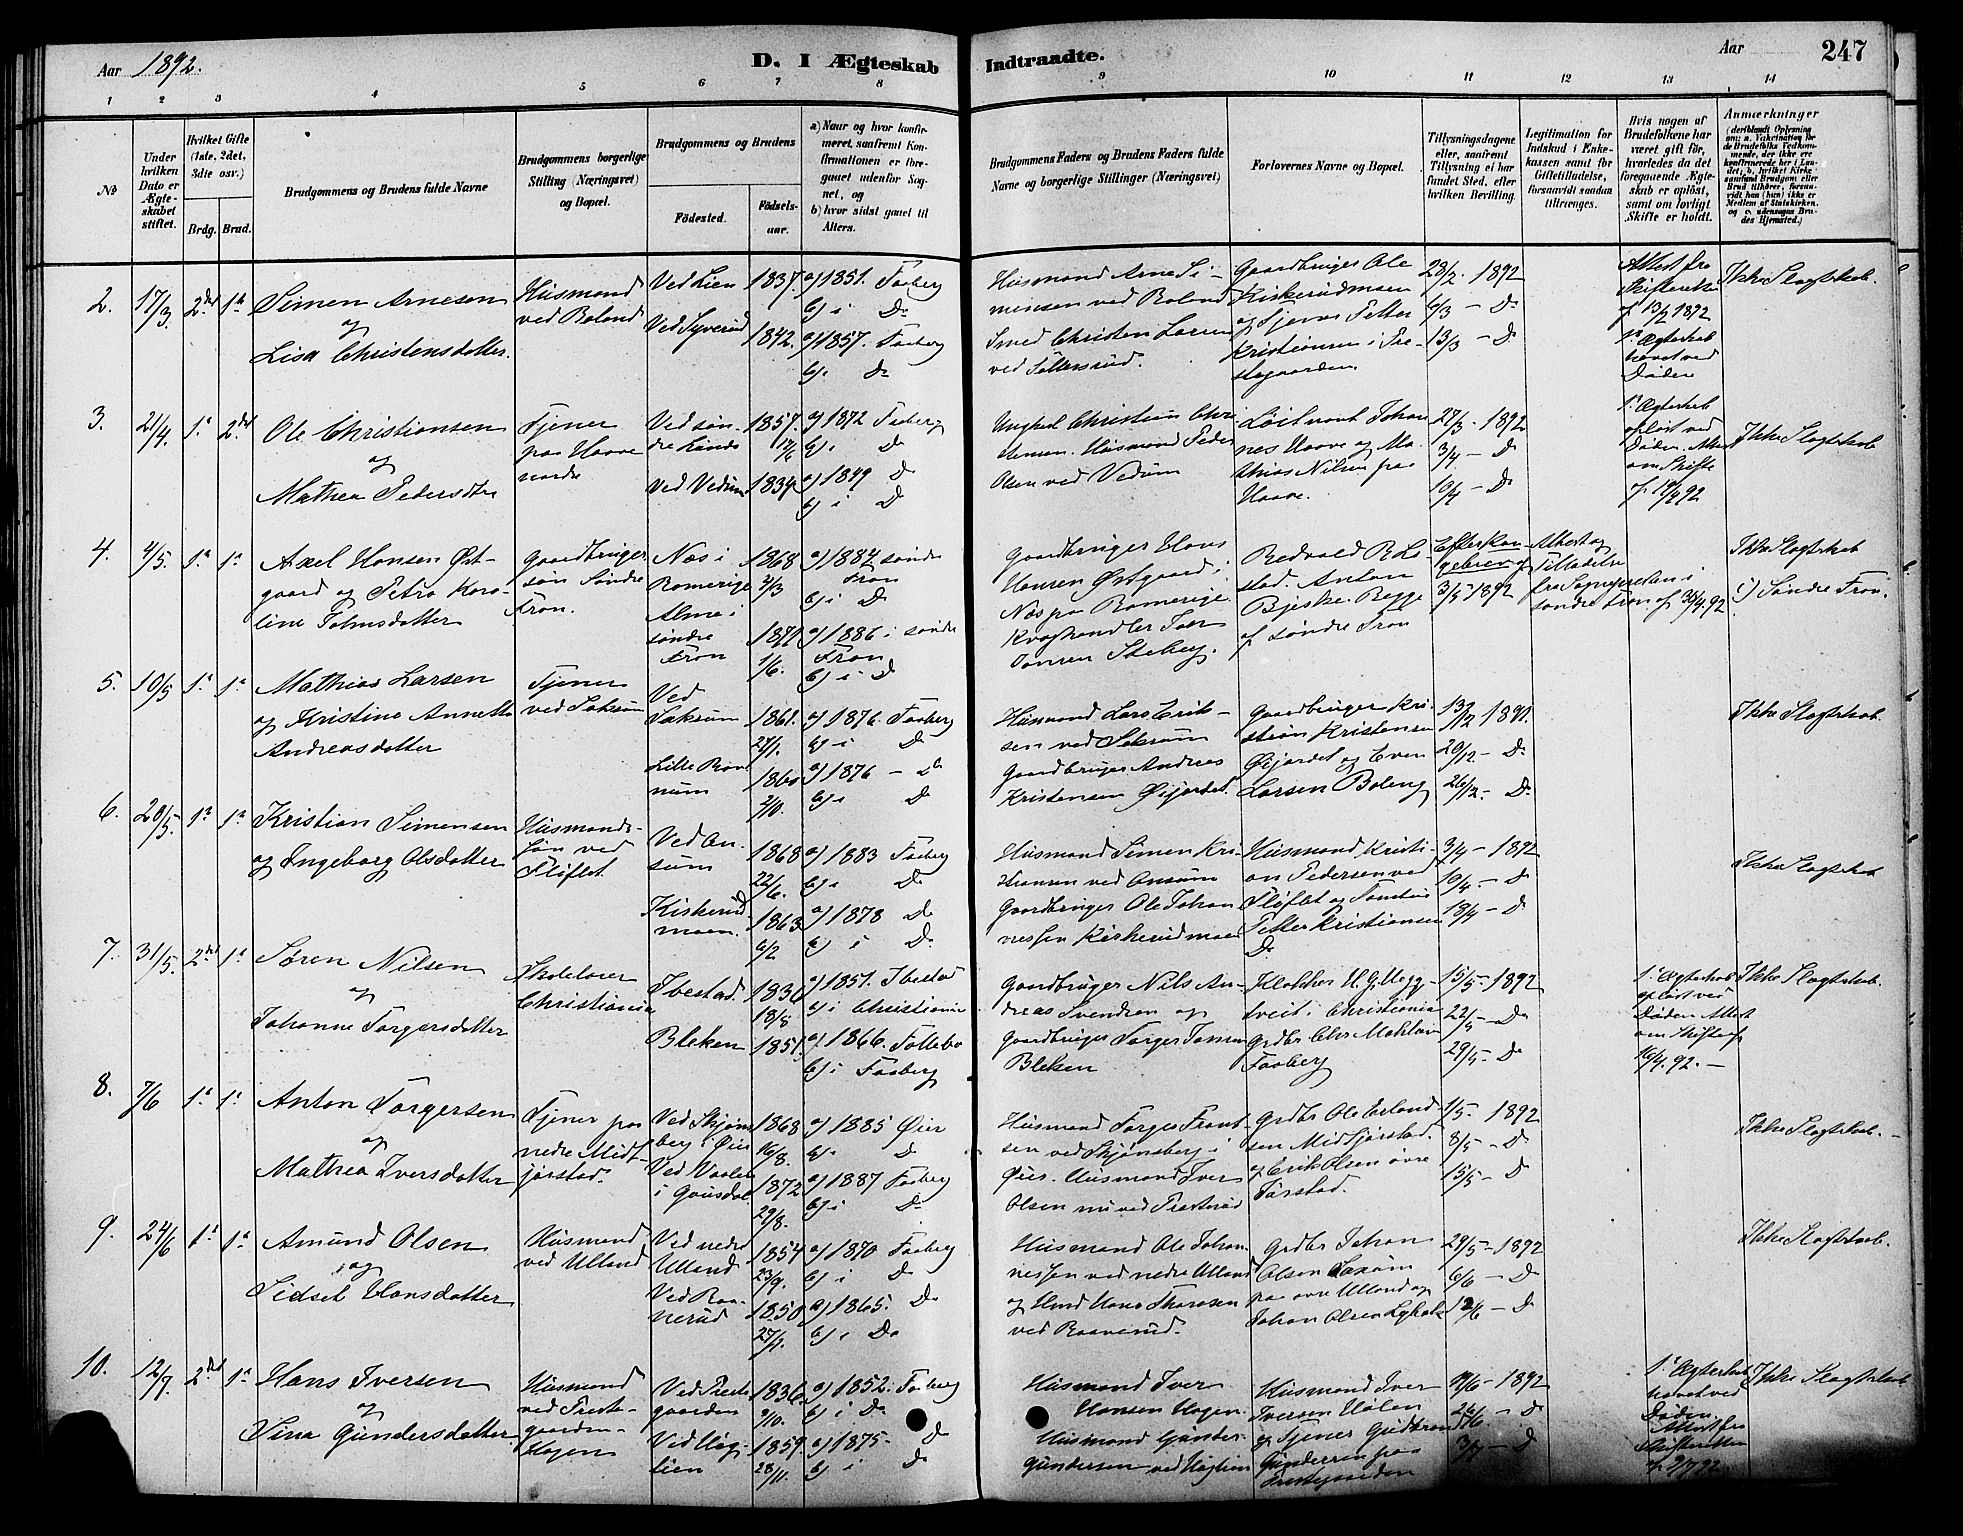 Aar 1892.
D. I Ægteskab Indtraadte.
Aar 247
1 2 3 4 5 6 7 8 9 10 11 12 13 14
No
Under hvilken Dato er Ægteskabet stiftet.
Hvilket Gifte (1ste, 2det, 3die osv.)
Brdg. Brud.
Brudgommens og Brudens fulde Navne
Brudgommens borgerlige Stilling (Næringsvei) og Bopæl.
Brudgommens og Brudens
Födested. Födsels-aar.
a) Naar og hvor konfirmeret, saafremt Konfirmationen er foregaaet udenfor Sognet, og
b) hvor sidst gaaet til Alters.
Brudgommens Faders og Brudens Faders fulde Navne og borgerlige Stillinger (Næringsvei)
Forlovernes Navne og Bopæl.
Tillysningsdagene eller, saafremt Tillysning ei har fundet Sted, efter hvilken Bevilling.
Legitimation for Indskud i Enkekassen samt for Giftetilladelse, forsaavidt saadan tiltrænges.
Hvis nogen af Brudefolkene har været gift, hvorledes da det foregaaende Ægteskab er oplöst, samt om lovligt Skifte er holdt.
Anmærkninger
2. 17/3 2det 1ste
Simen Arnesen
og
Lisa Christensdatter.
Husmand
ved Boland
Ved Lien 1837.
Ved Syverud 1842.
a) 1851. Faaberg
b) i Do
a) 1857. Faaberg
b) i Do
Husmand Arne Si-
mensen ved Boland
Smed Christen Larsen
Gaardbruger Ole
Kiskerudmoen
og Tjener Petter
Kristiansen i Pre-
stegaarden.
28/2. 1892
6/3 – Do
13/3 – Do
Attest fra
Skifteretten
af 13/2 1892
1ste Ægteskab
hævet ved
Døden
Ikke Slægtskab.
3. 21/4. 1ste 2det
Ole Christiansen
og
Mathea Pedersdtr
Tjener
paa Haave
nordre
Ved søn-
dre
1857.
Ved Vedum 1834
a) 1872 Faaberg
b) i Do
a) 1849 Do
b) i Do
Ungkarl Christian Chri-
stiansen. Husmand Peder
Olsen ved Vedum
Løitnant Johan-
nes Haave og Ma-
thias Nilsen paa
Haave.
27/3. 1892
3/4 – Do
10/4 – Do
1ste Ægteskab
opløst ved
Døden. Attest
om Skifte
af 19/4 92
Ikke Slægtskab
4. 4/5. 1ste 1ste
Axel Hansen Øst-
gaard og Petra Karo-
line Johnsdatter
Gaardbruger
søn Søndre
Fron.
Næs i
Romerige
1868
2/3
Alme i
søndre
Fron
1871
1/6.
a) 1884 søndre
Fron
b) i Do
a) 1886 i søndre
Fron
b) i Do
Gaardbruger Hans
Hansen Østgaard i
Næs paa Romerige.
Kvæghandler Iver
Jonsen Steberg.
Anton
Bjerke. Begge
af søndre Fron
Efter Kon-
gebrev af
3/5 1892
Attest og
Tilladelse
fra Sognepresten i
søndre Fron af 30/4. 92
Ikke Slægtskab
c) Søndre Fron.
5. 10/5 1ste 1ste
Mathias Larsen
og Kristine Annette
Andreasdatter
Tjener
ved Saksum
Ved
Saksum 1861.
27/1.
1860
2/11.
a) 1876 Faaberg
b) i Do
a) 1876 – Do
b) i Do
Husmand Lars Erik-
sen ved Saksum
Gaardbruger Andreas
Kristensen Øijordet.
Gaardbruger Kri-
stian Kristensen
Øijordet og Even
Larsen Boleng
13/12 1891.
20/12 – Do
26/12. – Do
Ikke Slægtskab.
6. 20/5. 1ste 1ste
Kristian Simensen
og Ingeborg Olsdatter
Husmands-
søn ved
Fløflet
Ved An-
sum
1868
22/6.
Kiskerud
moen.
1863
6/2
a) 1883 Faaberg
b) i Do
a) 1878 Do
b) i Do
Husmand Simen Kri-
stiansen ved Ansum
Gaardbruger Ole Johan-
nessen Kiskerudmoen
Husmand Kristi-
an Pedersen ved
Fløflet og
Petter Kristiansen
Do
3/4 – 1892
10/4. – Do
18/4 – Do
Ikke Slægtskab
7. 31/5. 2det 1ste
Søren Nilsen
og
Johanne Torgersdatter
Skolelærer
Christiania
Ibestad. 1836
18/5
Bleken 1851.
a) 1851. Ibestad
b) i Christiania
a) 1866. Follebo
b) i Faaberg
Gaardbruger Nils An-
dreas Svendsen og
Gaardbruger Torger Jonsen
Bleken
Klokker H. Gillegg-
tveit i Christiania
Grdbr Chr Mæhlum
Faaberg
15/5 – 1892
22/5 – Do
29/5 – Do
1ste Ægteskab
opløst ved
Døden Attest
om Skifte af
16/4. 92. –
Ikke Slægtskab.
8. 7/6 1ste 1ste
Anton Torgersen
og
Mathea Iversdatter
Tjener paa
nedre Midt-
jørstad.
Ved Skjøns-
berg i Øier
1868
16/8.
Ved
i Gausdal
1872
29/8.
a) 1885 Øier
b) i Do
a) 1887 Faaberg
b) i Do
Husmand Torger Frant-
sen ved Skjønsberg i
Øier. Husmand Iver
Olsen nu ved Prestrud
Grdbr Ole Erland-
sen Midtjørstad.
og Erik Olsen øvre
Jørstad.
1/5. – 1892
8/5 – Do
15/5 – Do
Ikke Slægtskab. –
9. 24/6 1ste 1ste
Amund Olsen
og
Sidsel Hansdatter
Husmand
ved Ulland
Ved nedre
Ulland
1854
23/9.
Ved Raa-
nerud
1850
27/1.
a) 1870 Faaberg
b) i Do
a) 1865. Do
b) i Do
Husmand Ole Johan-
nessen ved nedre Ulland
og Hmd Hans Thorsen
ved Raanerud.
Grdbr Johan
Olsen Saxum
paa øvre Ulland og
Johan Olsen
29/5 – 1892
6/6 – Do
12/6 – Do
Ikke Slægtskab.
10. 12/7. 2det 1ste
Hans Iversen
og
Sina Gundersdatter
Husmand
ved Preste-
gaarden-
Hagen
Ved Preste-
gaarden
1836.
9/10.
Ved Høg-
lien
1859
28/11.
a) 1852. Faaberg
b) i Do
a) 1875. Do
b) i Do
Husmand Iver
Hansen Hagen
Husmand Gunder
Gundersen ved Høglien
Husmand Iver
Iversen Hølen
og Tjener Gudbrand
Gundersen paa
Prestegaarden
19/6 – 1892
26/6 – Do
3/7 – Do
1ste Ægteskab
hævet ved
Døden.
Attest fra
Skifteretten
af 9/7 92.
Ikke Slægtskab